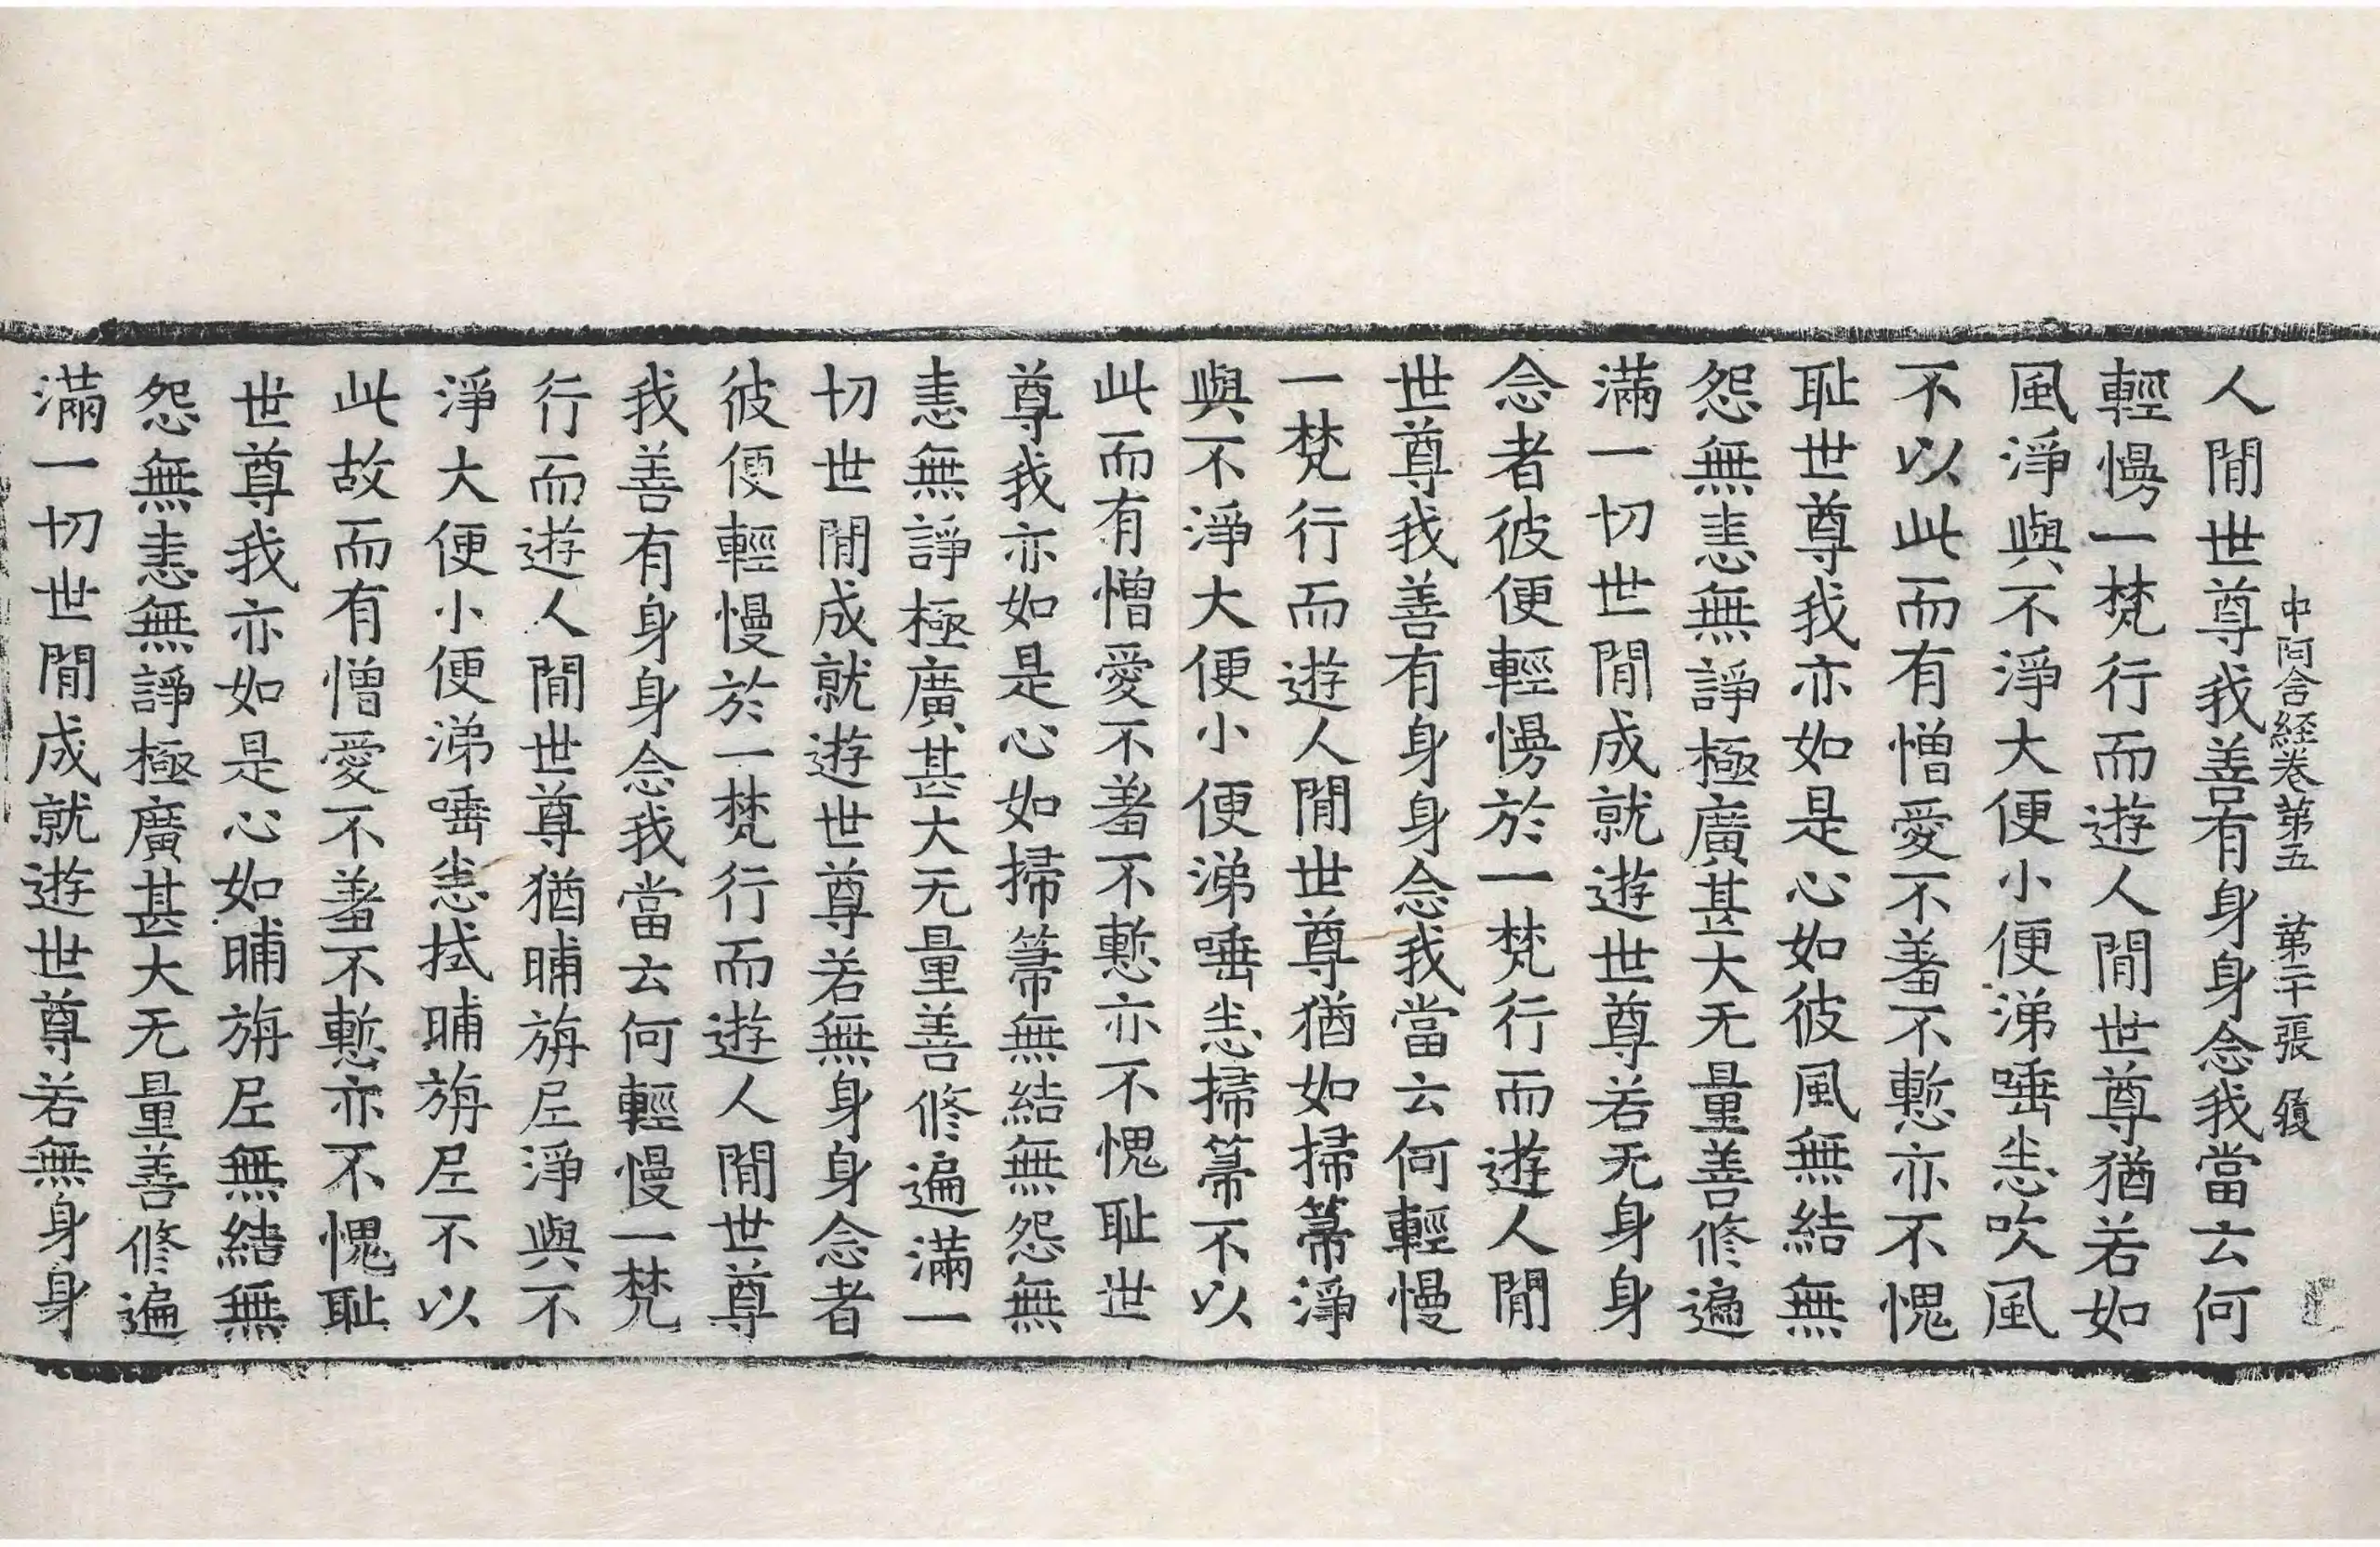 中阿含経卷第五　第二十張　履
人閒世尊我善有身身念我當云何
輕慢一梵行而遊人閒世尊猶若如
風淨與不淨大便小便涕唾恙吹風
不以此而有憎愛不羞不慙亦不愧
耻世尊我亦如是心如彼風無結無
怨無恚無諍極廣甚大无量善修遍
滿一切世閒成就遊世尊若无身身
念者彼便輕慢於一梵行而遊人閒
世尊我善有身身念我當云何輕慢
一梵行而遊人閒世尊猶如掃箒淨
與不淨大便小便涕唾恙掃箒不以
此而有憎愛不羞不慙亦不愧耻世
尊我亦如是心如掃箒無結無怨無
恚無諍極廣甚大无量善修遍滿一
切世閒成就遊世尊若無身身念者
彼便輕慢於一梵行而遊人閒世尊
我善有身身念我當云何輕慢一梵
行而遊人閒世尊猶晡旃尼淨與不
淨大便小便涕唾恙拭晡旃尼不以
此故而有憎愛不羞不慙亦不愧耻
世尊我亦如是心如晡旃尼無結無
怨無恚無諍極廣甚大无量善修遍
滿一切世閒成就遊世尊若無身身